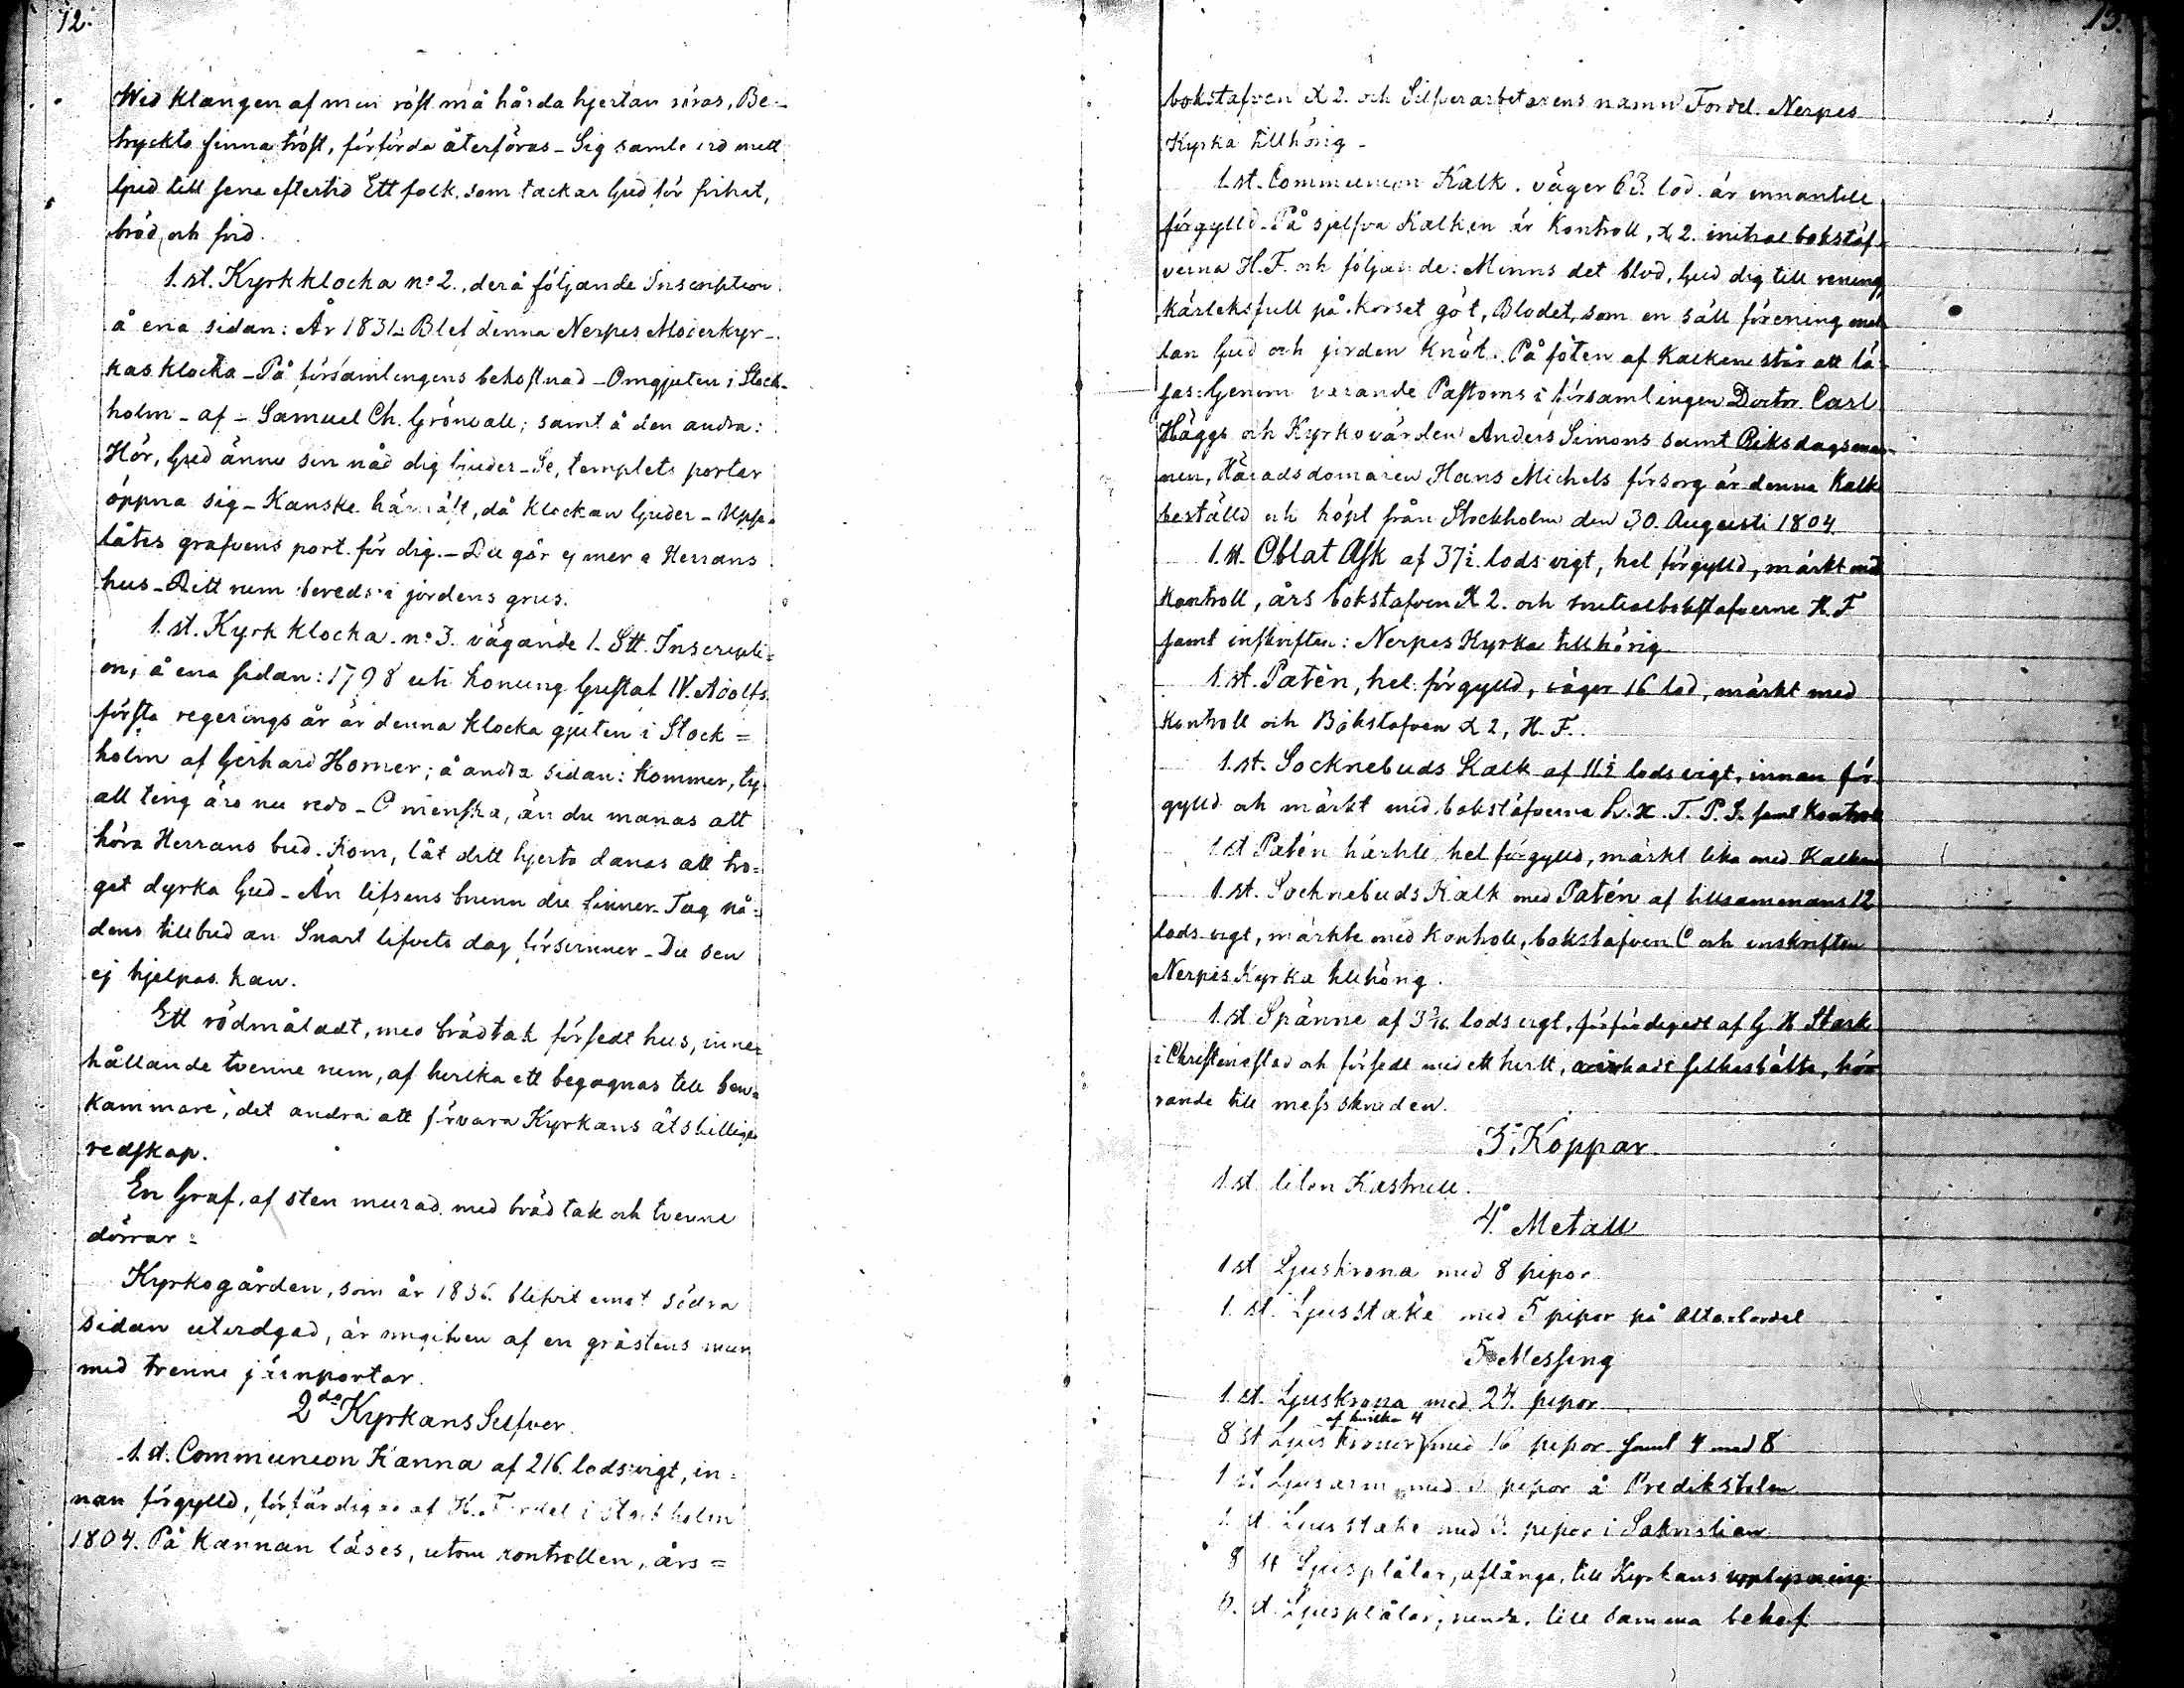 12.
Wid klangen af min röst må hårda hjertan röras, Be-
tryckta finna tröst, förförda återföras _ Sig samle vid mitt
ljud till sena eftertid Ett folk, som tackar Gud för frihet,
bröd, och frid.
1. st. Kyrkklocka No 2., derå följande Inscription
å ena sidan: År 1831_ Blef denna Nerpes Moderkyr-
kas klocka _ På församlingens bekostnad _ Omgjuten i Stock-
holm _ af _ Samuel Ch. Grönvall; samt å den andra:
Hör, Gud ännu sin nåd dig bjuder _ Se, templets portar
öppna sig _ Kanske härnäst, då klockan ljuder _ Upp-
låtes grafvens port för dig. _ Du går ej mer i Herrans
hus _ Ditt rum bereds i jordens grus.
1. st. Kyrkklocka No 3. vägande 1. Stt. Inscripti=
on, å ena sidan: 1798 uti Konung Gustaf IV. Adolfs
första regerings år är denna klocka gjuten i Stock=
holm af Gerhard Horner; å andra sidan: Kommer, ty
all ting äro nu redo _ O menska, än du manas att
höra Herrans bud. Kom, låt ditt hjerta danas att tro=
get dyrka Gud _ Än lifsens brunn du finner _ Tag nå=
dens tillbud an Snart lifvets dag försvinner _ Du sen
ej hjelpas kan.
Ett rödmåladt, med brädtak försedt hus, inne=
hållande tvenne rum, af hvilka ett begagnas till ben=
kammare, det andra att förvara Kyrkans åtskillige
redskap.
En Graf, af sten murad med brädtak och tvenne
dörrar =
Kyrkogården, som år 1836 blifvit emot södra
sidan utvidgad, är omgifven af en gråstens mur
med trenne järnportar.
2do Kyrkans Silfver.
1. st. Communion Kanna af 216. lods vigt, in=
nan förgylld, förfärdigad af H. Fordel i Stockholm
1804. På Kannan läses, utom kontrollen, års=
13.
bokstafven X 2. och Silfverarbetarens namn Fordel. Nerpes
Kyrka tillhörig _
1. st. Communion Kalk. väger 63. lod. är innantill
förgylld _ På sjelfva Kalken är Kontroll, X 2. initial bokstäf-
verna H. F. och följande: Minns det blod, Gud dig till rening,
kärleksfull på korset göt, Blodet, som en säll förening mel
lan Gud och jorden knöt. På foten af Kalken står att lä-
sas: Genom varande Pastorns i församlingen Doctor Carl
Häggs och Kyrkovärden Anders Simons samt Riksdagsman
nen, Häradsdomaren Hans Michels försorg är denna Kalk
beställd och köpt från Stockholm den 30. Augusti 1804
1. st. Oblat Ask af 37½ lods vigt, hel förgylld, märkt med
Kontroll, års bokstafven X 2. och initialbokstäfverne H. F
samt inskriften: Nerpes Kyrka tillhörig
1. st. Patèn, hel förgylld, väger 16 lod, märkt med
Kontroll och Bokstafven X 2, H. F.
1. st. Socknebuds Kalk af 11½ lods vigt, innan för
gylld och märkt med bokstäfverna L. X. T. P. S. samt Kontroll
1 st Patén härtill, hel förgylld, märkt lika med Kalken
1. st. Socknebuds Kalk med Patén af tillsammans 12
lods vigt, märkte med kontroll, bokstafven C och inskriften
Nerpes Kyrka tillhörig.
1. st Spänne af lods vigt, förfärdigadt af G. H Stark
i Christinestad och försedt med ett hvitt, virkadt silkesbälte, hö
rande till messskruden.
3o Koppar.
1 st liten Kastrull.
4o Metall
1 st Ljuskrona med 8 pipor
1. st. Ljusstake med 5 pipor på Altarbordet
5o Messing
1 st. Ljuskrona med 24 pipor
af hvilka 4
8 st Ljuskronor med 16 pipor samt 4 med 8
1 st Ljusarm med 3 pipor å Predikstolen
1 st. Ljusstake med 3. pipor i Sakristian
8 st Ljusplåtar, aflånga, till Kyrkans upplysning
6. st. Ljusplåtar, runda, till samma behof